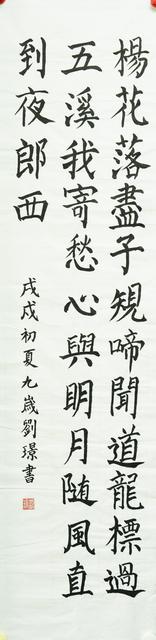 楊花落盡子規啼聞道龍標過
五溪我寄愁心與明月随風直
到夜郎西
戊戌初夏九歲劉璟書